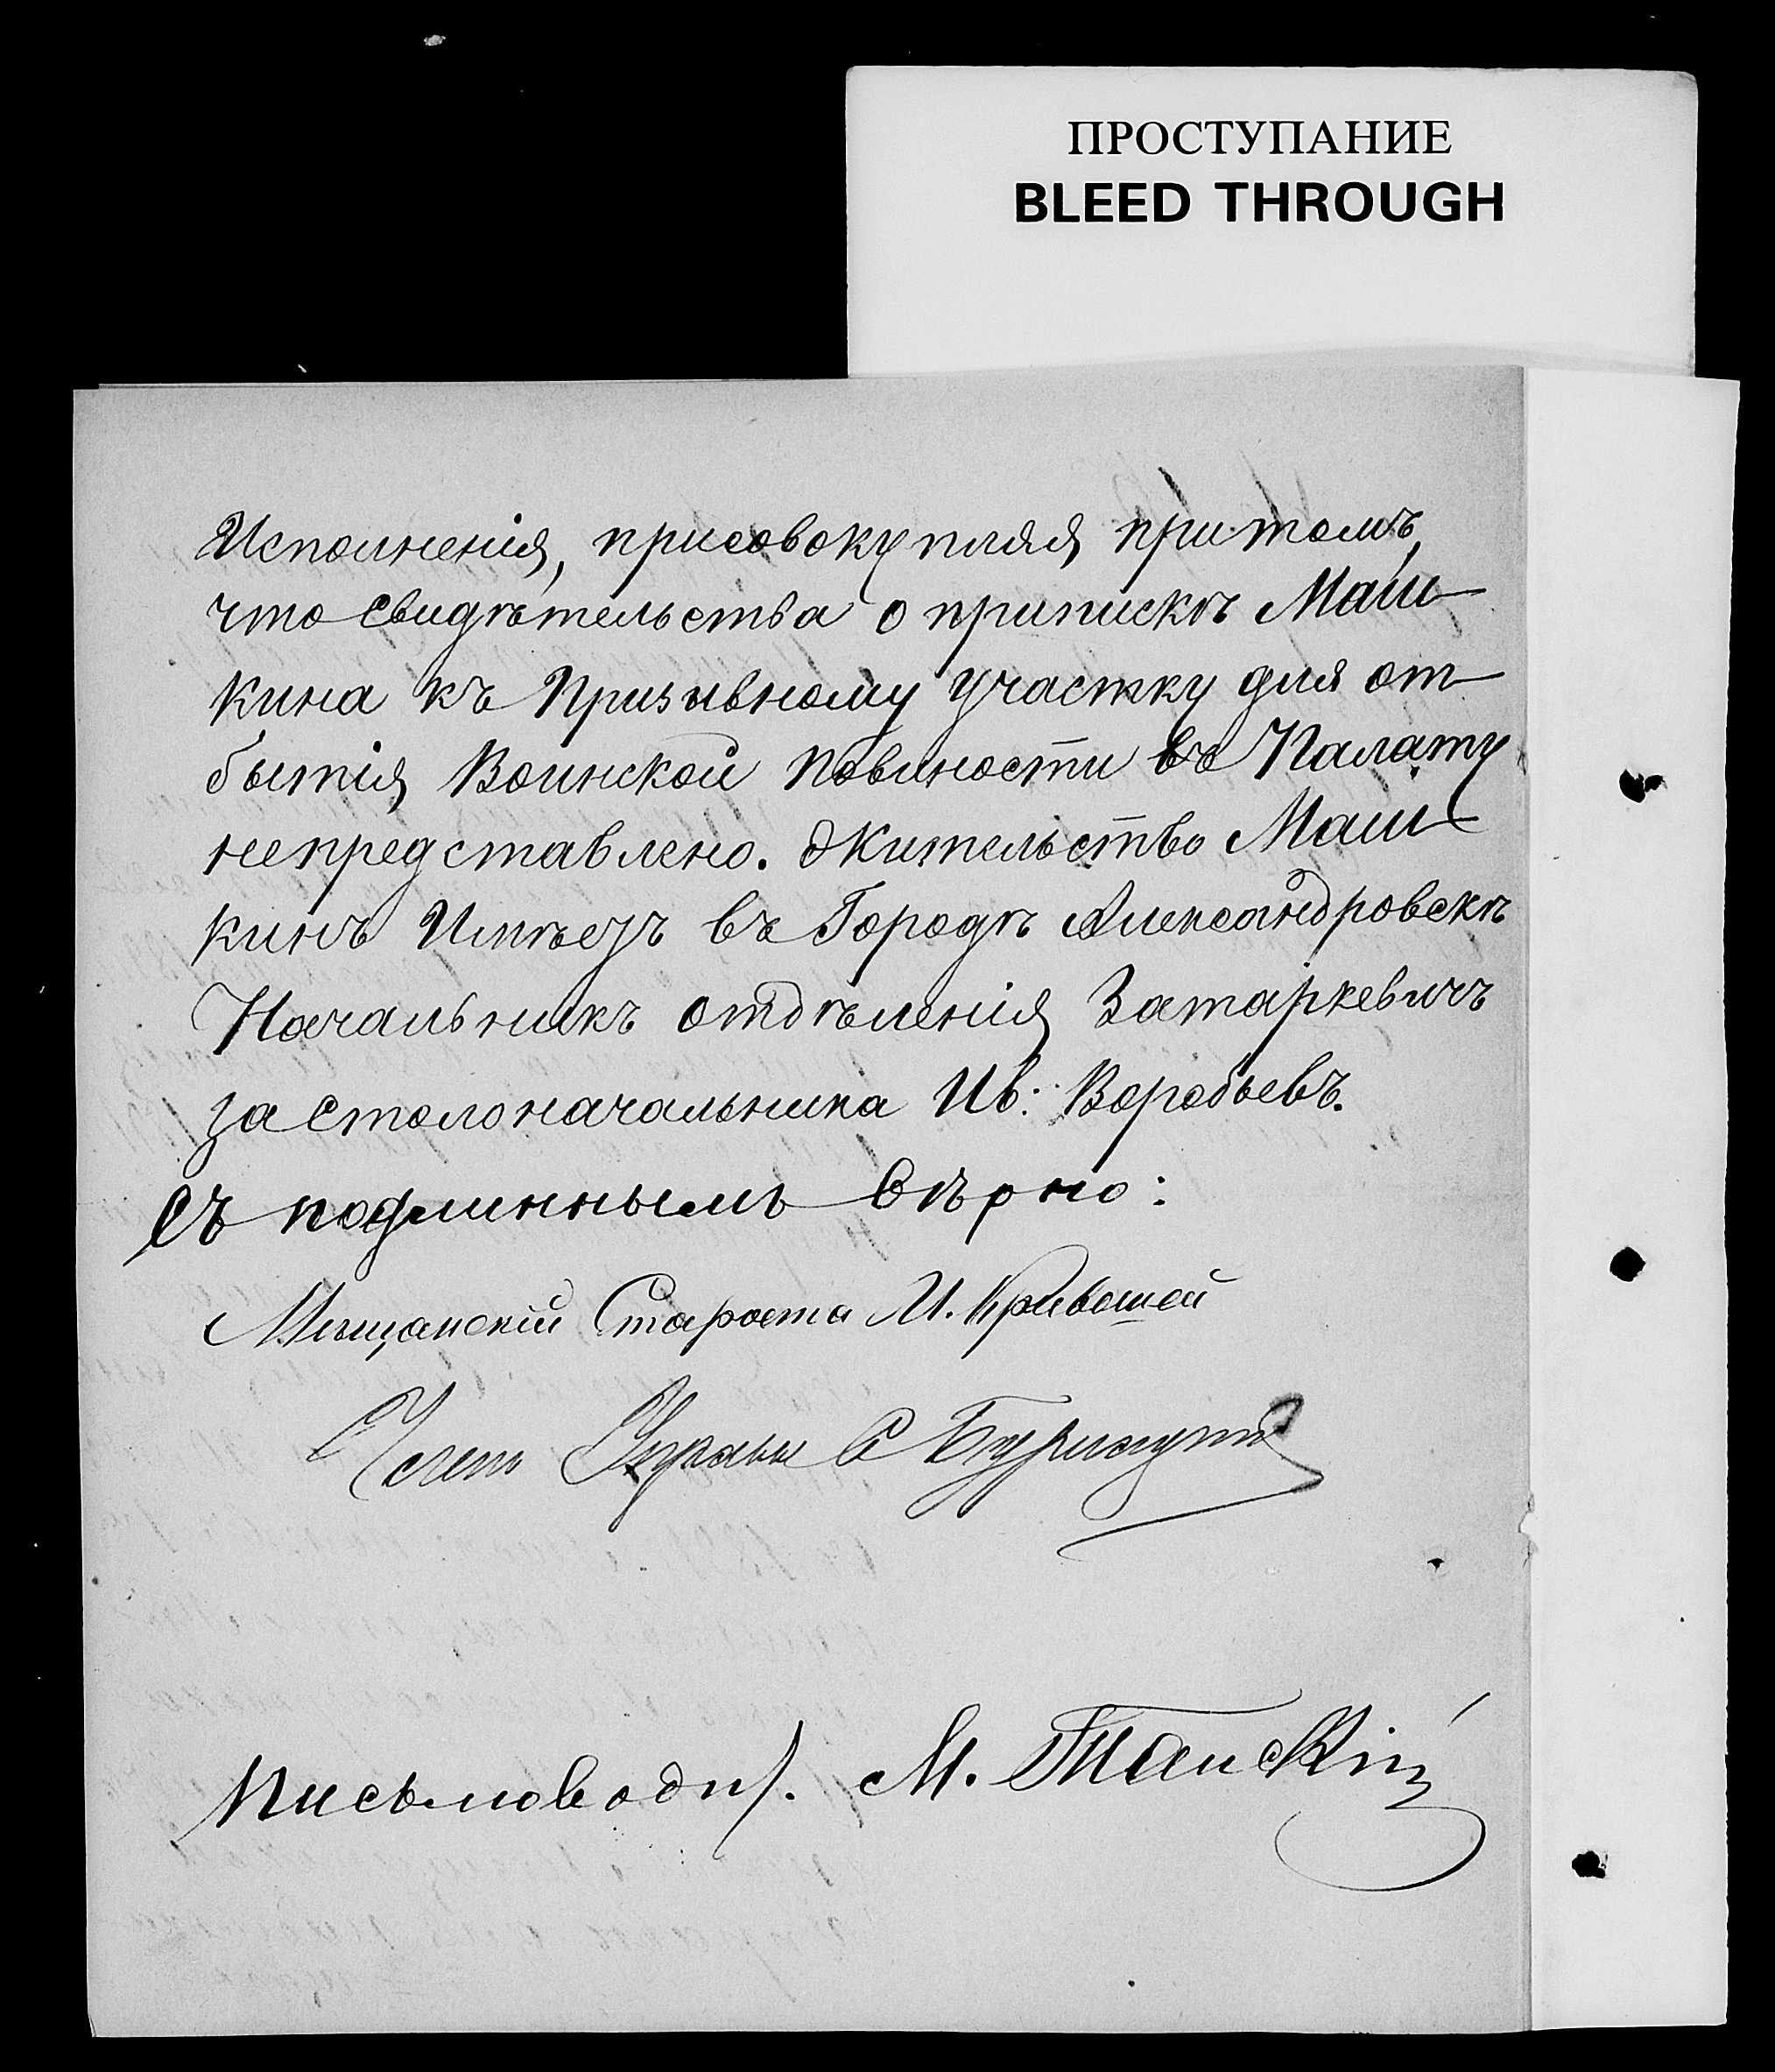 ПРОСТУПАНИЕ
BLEED THROUGH
Исполненія, присовокупляя притомъ,
что свидѣтельства о припискѣ Маш-
кина къ Призывному участку для от-
бытія Воинской повиности въ Палату
непредставлено. Жительство Маш-
кинъ Имѣетъ въ Городѣ Александровскѣ
Начальникъ отдѣленія Затаркевичъ
за столоначальника Ив: Воробьевъ.
Съ подлиннымъ вѣрно:
Мѣщанскій Староста М. Кривошей
Членъ Управы
Письмоводит. М. Танскій